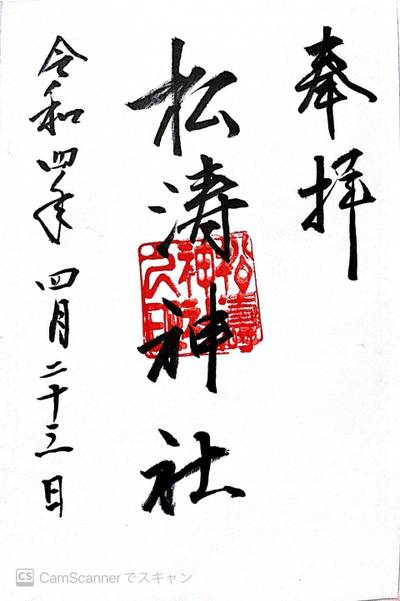 奉拝
松涛神社
令和四年四月二十三日
CS CamScannerでスキャン